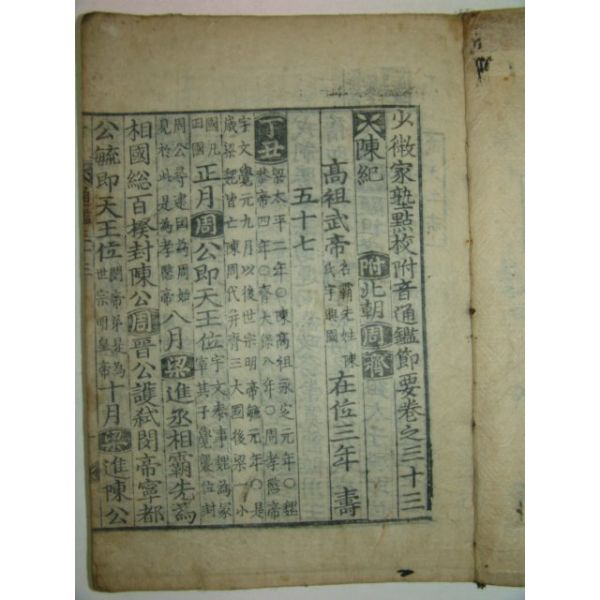 少微家塾點校附音通鑑節要卷之三十三
陳紀 附北朝周齊
高祖武帝 名霸先姓陳氏字興國 在位三年 壽
五十七
丁丑 梁太平二年○陳高祖永定元年○魏
恭帝四年○齊天保八年○周孝愍帝
宇文覺元九月以後世宗明帝毓元年○是
歲梁魏皆亡陳周代并齊三大國後梁一小
國凡四國 正月周公即天王位 宇文泰事魏為冢宰其子覺襲位封
周公尋建國為周始見於此是為孝愍帝 八月梁進丞相霸先為
相國總百揆封陳公周晉公護弑閔帝寧都
公毓即天王位 閔帝弟是為世宗明皇帝 十月梁進陳公